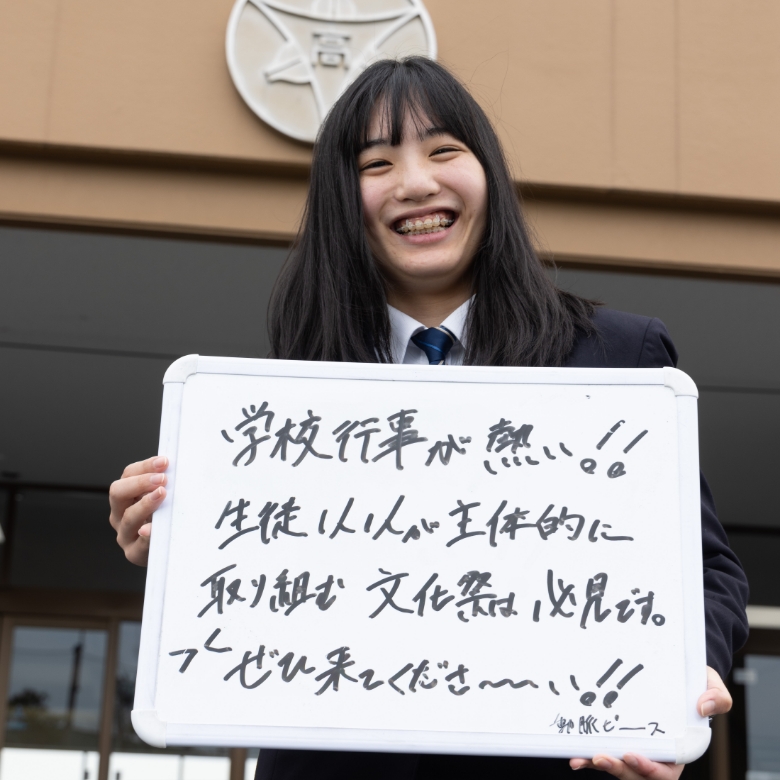 高
学校行事が熱い!!
生徒1人1人が主体的に
取り組む 文化祭は 必見です。
ぜひ来てくださ〜〜い!!